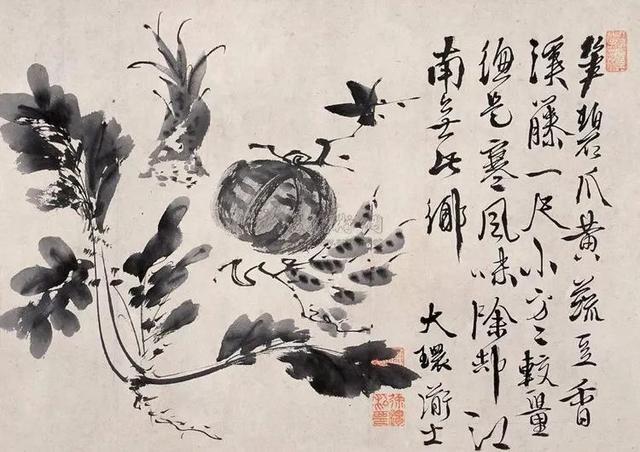 碧瓜黃蔬豆香
溪藤一尺小方較量
是寒風味除却江
南無此鄉
大環士